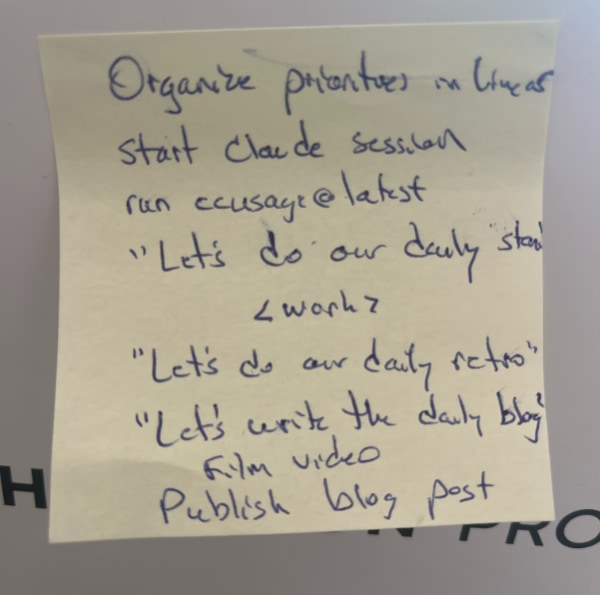 Organize priorities in Linear
start Claude session
run ccusage@latest
"Let's do our daily stand
<work>
"Let's do our daily retro"
"Let's write the daily blog"
Film video
Publish blog post
H
N PRO